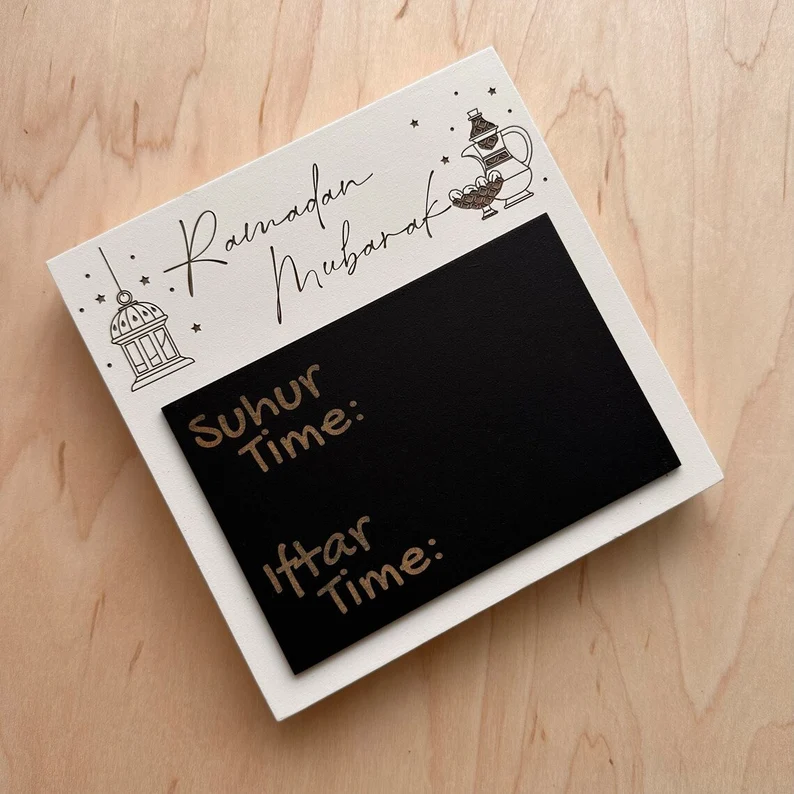 Ramadan
Mubarak
Suhur
Time:
Iftar
Time: